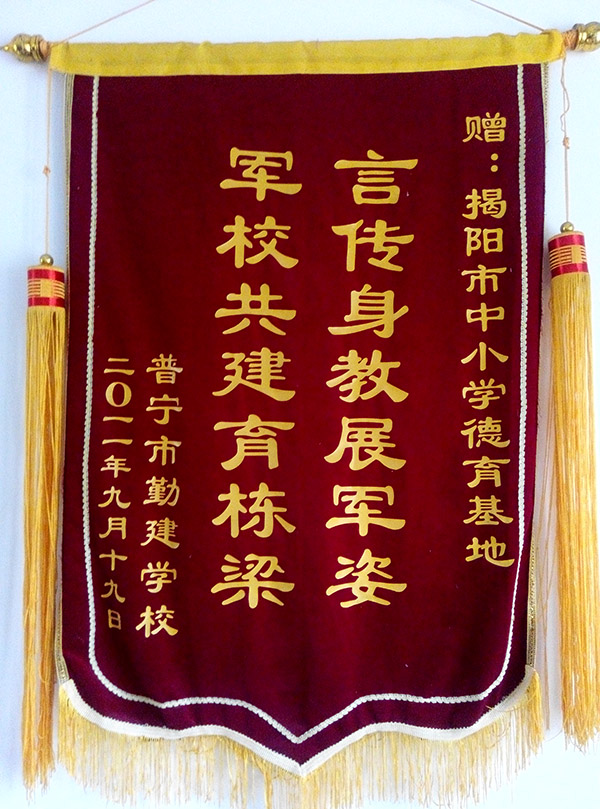 赠：揭阳市中小学德育基地
言传身教展军姿
军校共建育栋梁
普宁市勤建学校
二〇一一年九月十九日